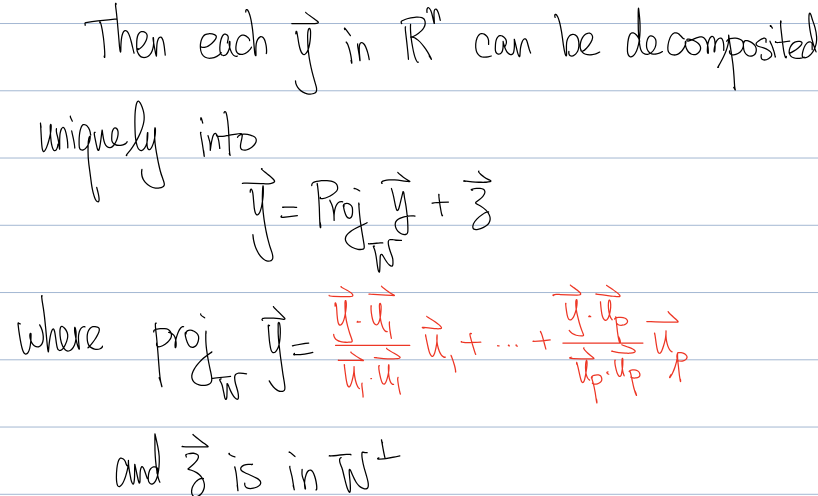 Then each $\vec{y}$ in $\mathbb{R}^n$ can be decomposited
uniquely into
$\vec{y} = \text{Proj}_W \vec{y} + \vec{z}$
where $\text{proj}_W \vec{y} = \frac{\vec{y} \cdot \vec{u}_1}{\vec{u}_1 \cdot \vec{u}_1} \vec{u}_1 + \cdots + \frac{\vec{y} \cdot \vec{u}_p}{\vec{u}_p \cdot \vec{u}_p} \vec{u}_p$
and $\vec{z}$ is in $W^\perp$